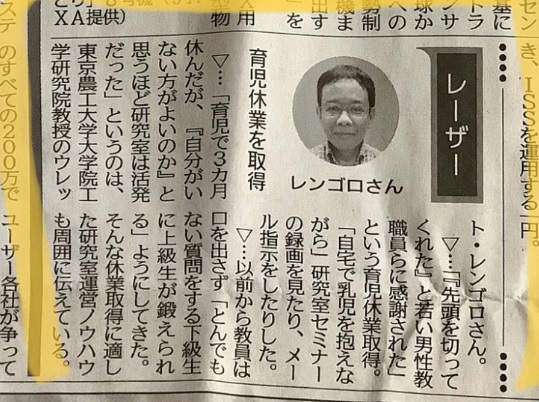 セン
き、ISSを運用する
円。
レーザー
レンゴロさん
育児休業を取得
▽…「育児で3カ月
休んだが、『自分がい
ない方がよいのか』と
思うほど研究室は活発
だった」というのは、
東京農工大学大学院工
学研究院教授のウレッ
ト・レンゴロさん。
▽…「『先頭を切って
くれた』と若い男性教
職員らに感謝された」
という育児休業取得。
「自宅で乳児を抱えな
がら」研究室セミナー
の録画を見たり、メー
ル指示をしたりした。
▽…以前から教員は
口を出さず「とんでも
ない質問をする下級生
に上級生が鍛えられ
る」ようにしてきた。
そんな休業取得に適し
た研究室運営ノウハウ
も周囲に伝えている。
XA提供)
ステ
のすべての200万で
ユーザー各社が争って